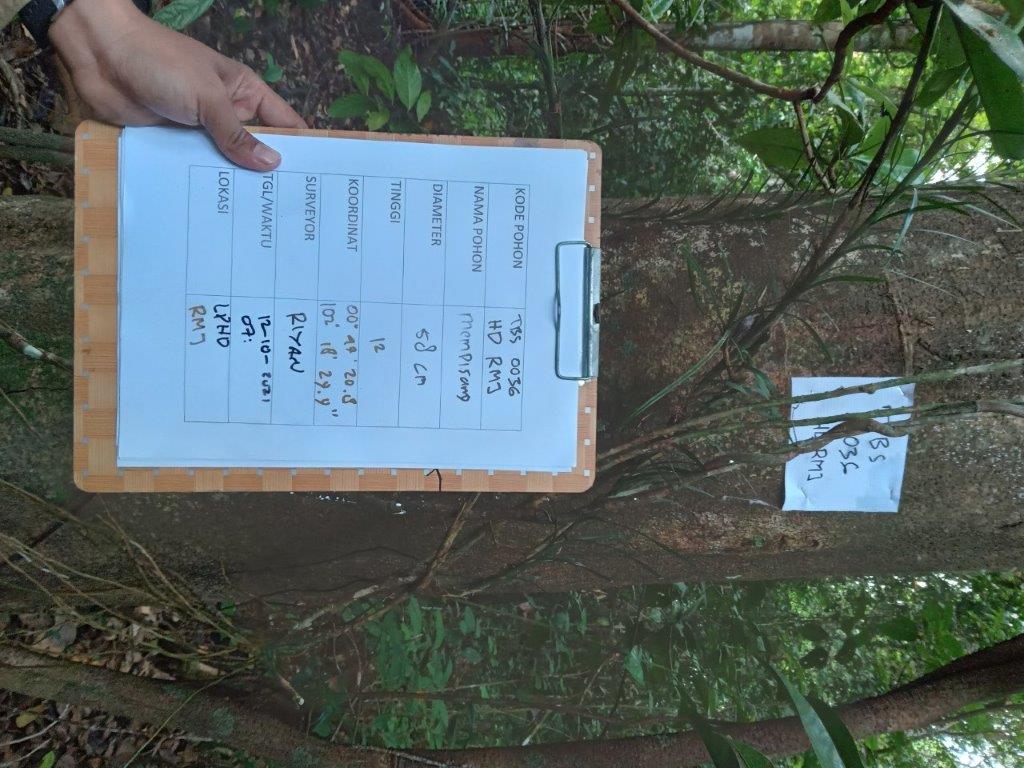 BS
036
HD RMJ
KODE POHON
TBS 0036
HD RMJ
NAMA POHON
mempisang
DIAMETER
58 cm
TINGGI
12
KOORDINAT
00° 47' 20.8
102° 18' 29.9"
SURVEYOR
RIYAN
TGL/WAKTU
12-10-2021
07:
LOKASI
LPHD
RMJ